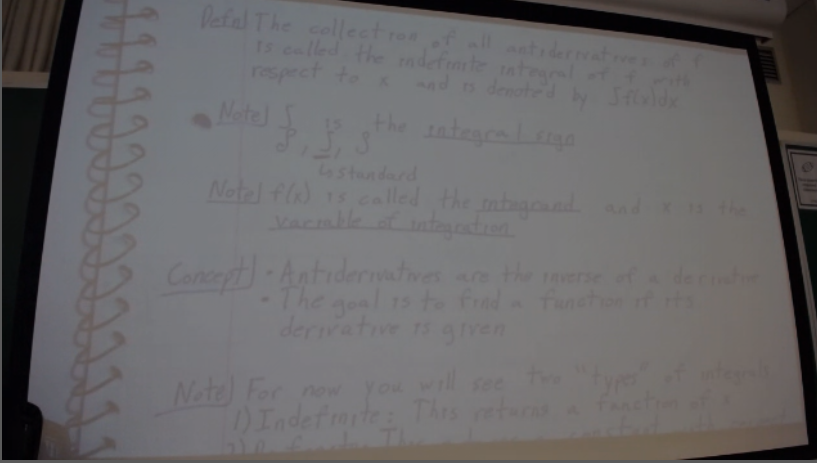 Defn] The collection of all antiderivatives of f
is called the indefinite integral of f with
respect to x and is denoted by ∫f(x)dx
Note] ∫ is the integral sign
∫, ∫, ∫
↳ standard
Note] f(x) is called the integrand and x is the
variable of integration
Concept] • Antiderivatives are the inverse of a derivative
• The goal is to find a function if its
derivative is given
Note] For now you will see two "types" of integrals
1) Indefinite: This returns a function of x
2)